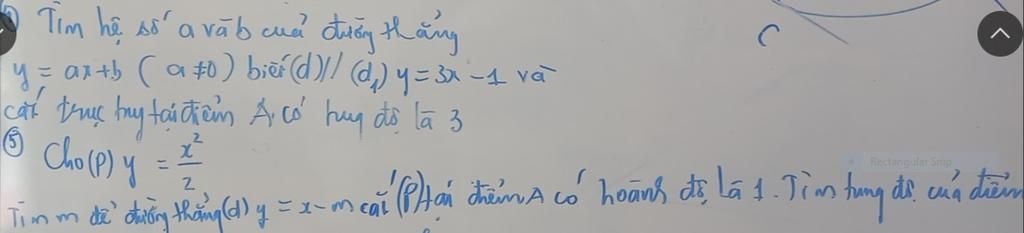 Tìm hệ số a và b của đường thẳng
y = ax+b ( a ≠0 ) biết (d) // (d₁) y = 3x -1 và
cắt trục tuy tại điểm A có tuy độ là 3
⑤ Cho (P) y = x²/2
Tìm m để đường thẳng (d) y = x - m cắt (P) tại điểm A có hoành độ là 1. Tìm tung độ của điểm
Rectangular Snip